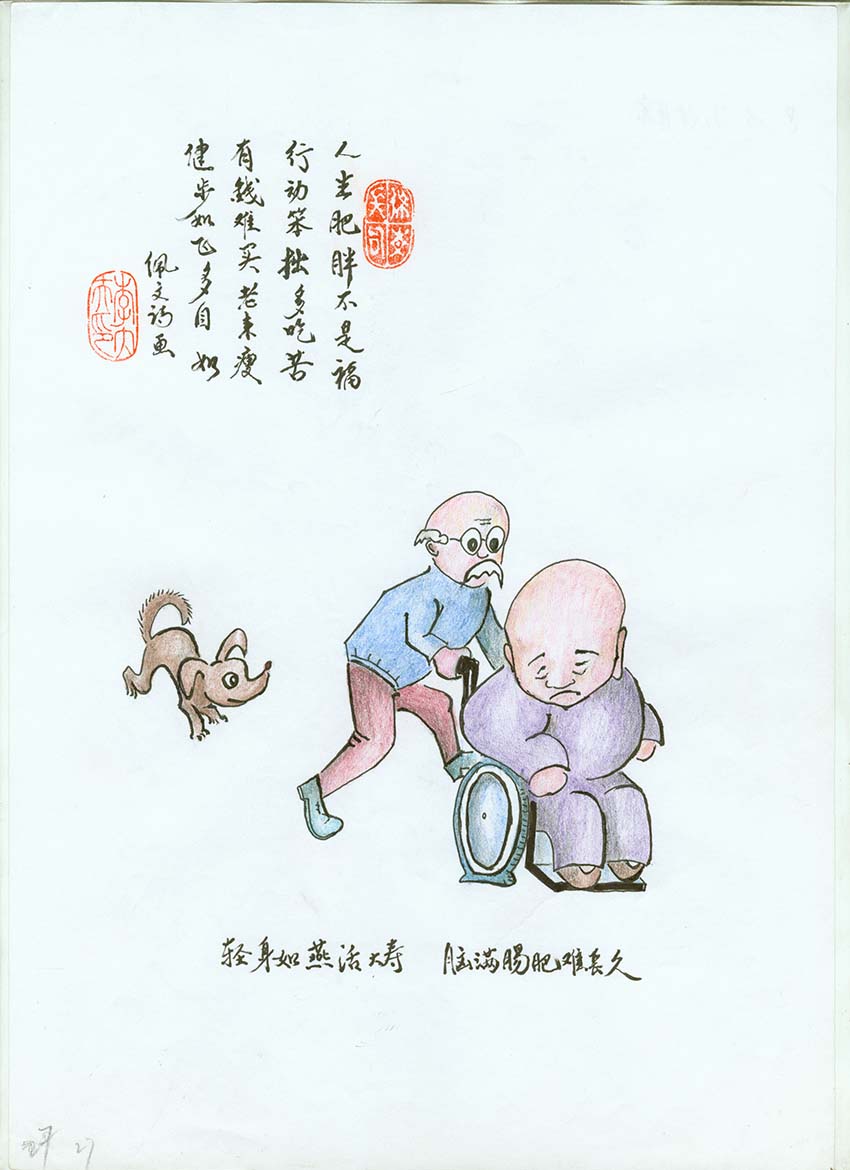 人生肥胖不是福
行动笨拙多吃苦
有錢难买老来瘦
健步如飞多自如
佩文诗画
轻身如燕活大寿 脑满腸肥难長久
27